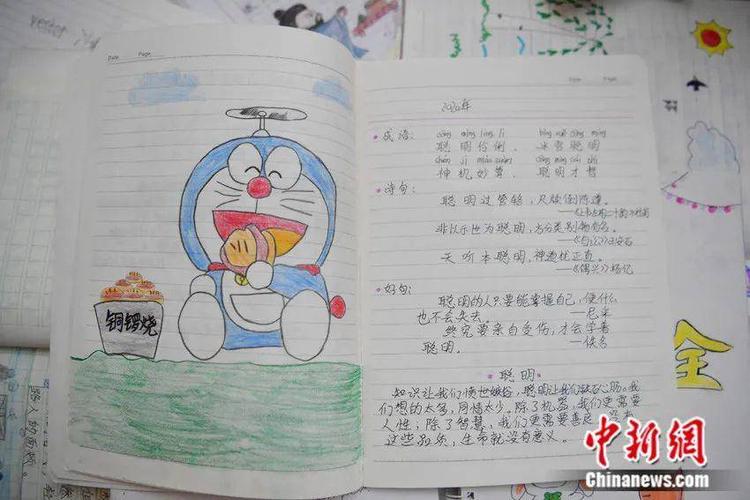 Date Page
Date Page
铜锣烧
2020年
• 成语:
cōng míng líng lì bīng xuě cōng míng
聪明伶俐、 冰雪聪明
shén jī miào suàn cōng míng cái zhì
神机妙算、 聪明才智
• 诗句:
聪明过管辂,尺牍倒陈遵。
非以示世为聪明,方分类别物有名。
王安石
天听本聪明,神逵枉正直。
杨亿
• 好句:
聪明的人只要能掌握自己,便什么
也不会失去。 ——尼采
然究要亲自受伤,才会学着
聪明。 ——佚名
• 聪明 •
知识让我们愤世嫉俗,聪明让我们铁石心肠。我
们想的太多,用情太少。除了机器,我们更需要
人性;除了智慧,我们更需要善良。没有
这些,生命就没有意义。
全
路人的面颊。
中新网
Chinanews.com